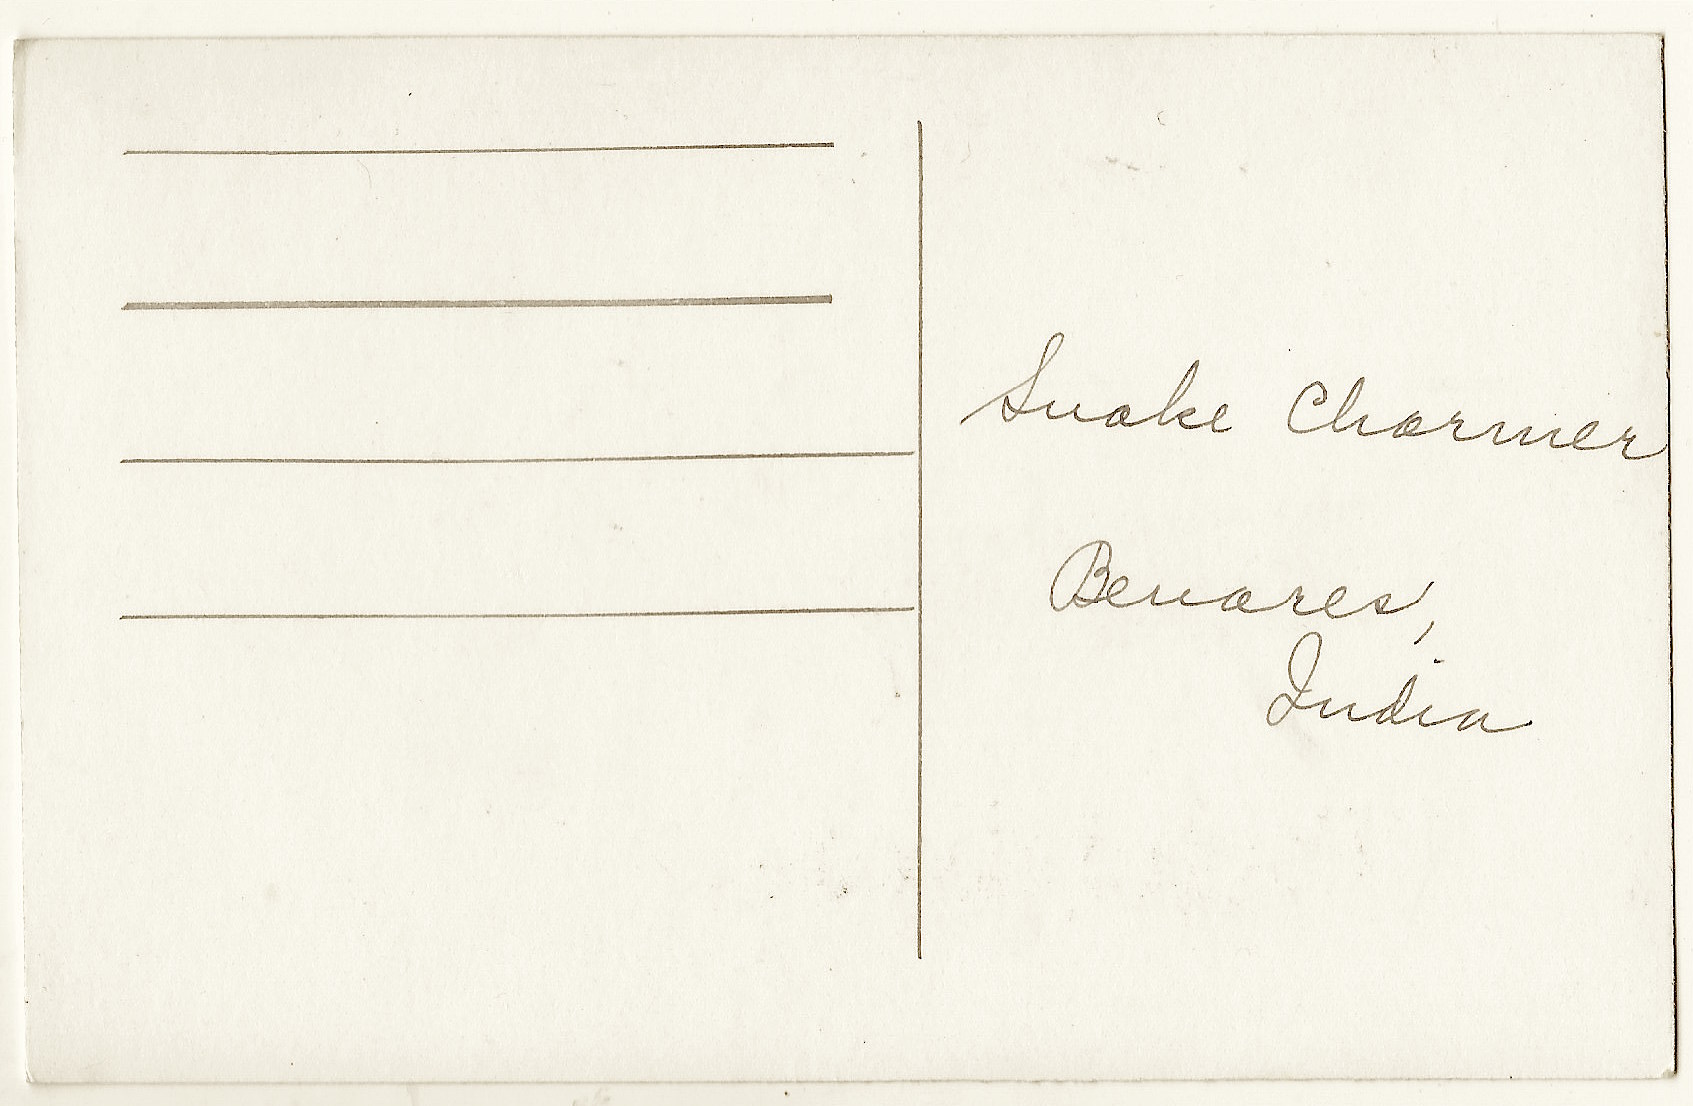 Snake Charmer
Benares,
India